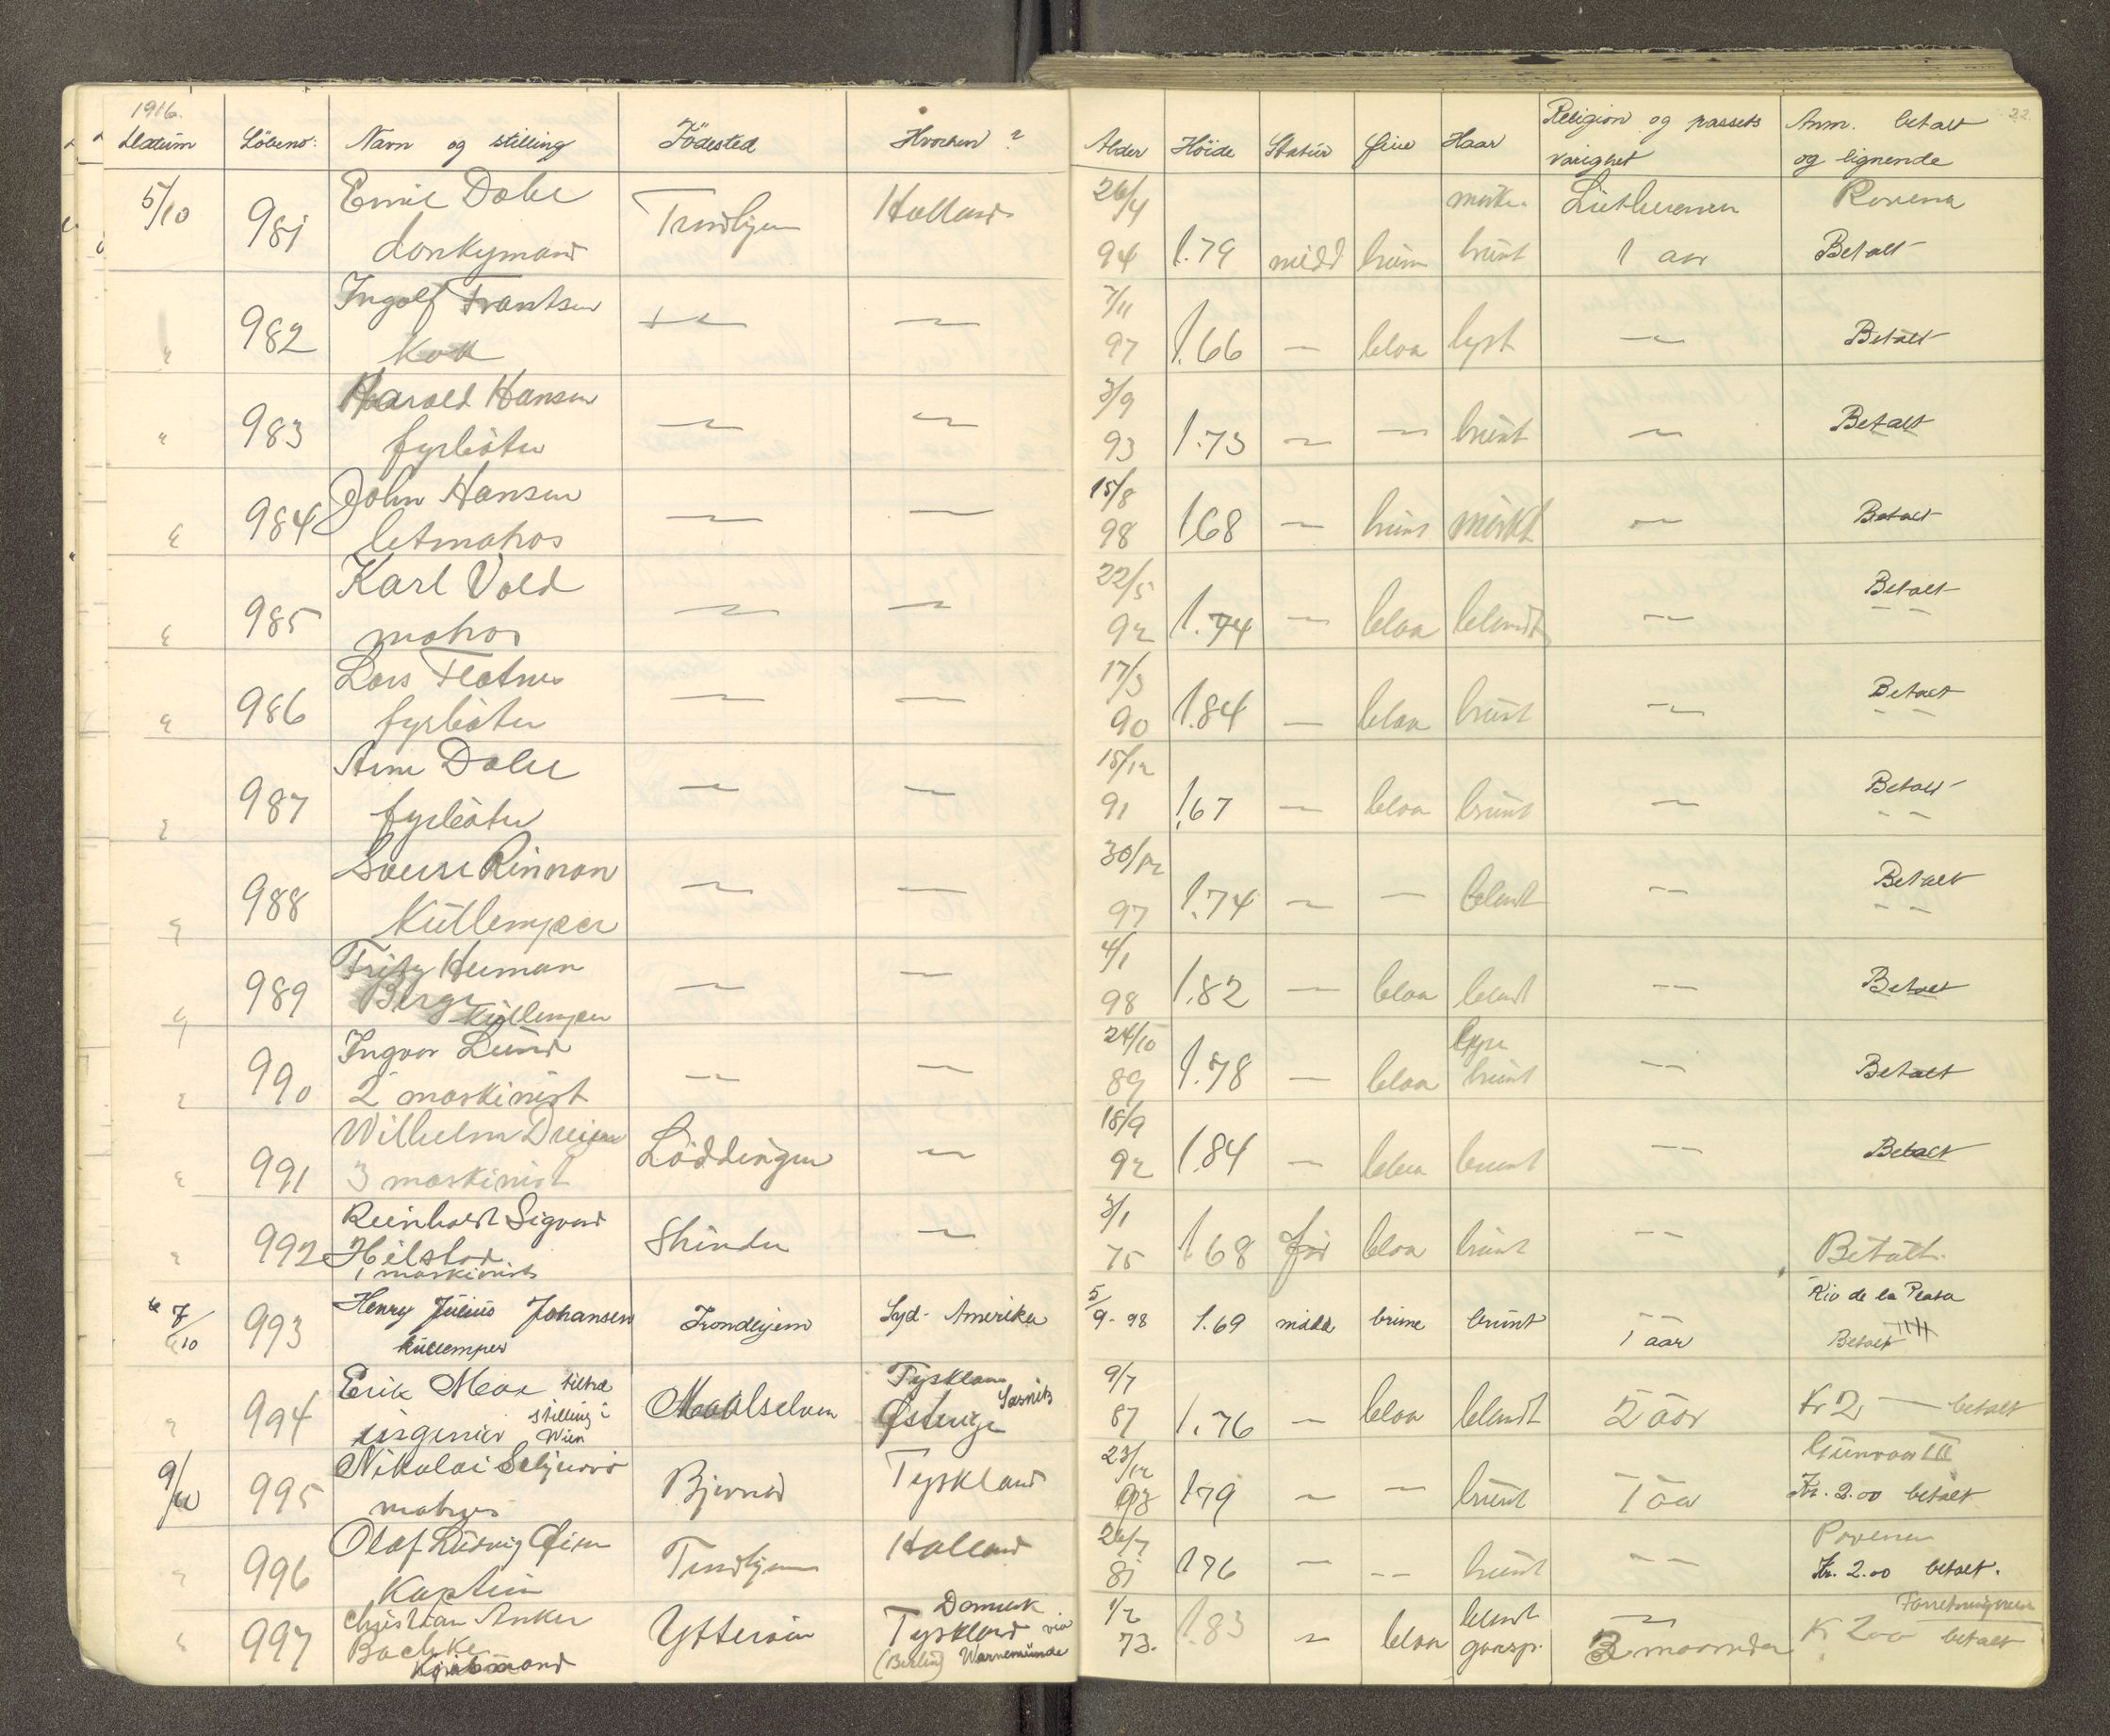 1916.
Datum Löbeno: Navn og stilling Födested Hvorhen? Alder Höide Statür Öine Haar Religion og passets varighet Anm. betalt og lignende
22
5/10 981 Emil Dahl Trondhjem Holland 26/4 mørke- Lutheraner Rovena
donkymand 94 1.79 midd brüne brünt 1 aar Betalt
" 982 Ingolf Frantsen — — 7/11
Kok 97 1.66 — blaa lyst — Betalt
" 983 Harald Hansen — — 3/9
fyrböter 93 1.73 — — brünt — Betalt
" 984 John Hansen — — 15/8
letmatros 98 1.68 — brüne mörkt — Betalt
" 985 Karl Vold — — 22/5
matros 92 1.74 — blaa blondt — Betalt
" 986 Lars Flatnes — — 17/3
fyrböter 90 1.84 — blaa brünt — Betalt
" 987 Arne Dahl — — 15/12
fyrböter 91 1.67 — blaa brünt — Betalt
" 988 Rinnan — — 30/12
Küllemper 97 1.74 — — blondt — Betalt
" 989 Fritz Herman — — 4/1
Berge Küllemper 98 1.82 — blaa blondt — Betalt
" 990 Ingvar Lünd — — 24/10 lyse
2 maskinist 89 1.78 — blaa brünt — Betalt
" 991 Wilhelm Dreyer Löddingen — 18/9
3 maskinist 92 1.84 — blaa brünt — Betalt
" 992 Reinholdt Sigvard Skinder — 3/1
Hilstad 75 1.68 för blaa brünt — Betalt.
1 maskinist
7/10 993 Henry Julius Johansen Trondhjem Syd-Amerika 5/9-98 1.69 midd brüne brünt 1 aar Rio de la Plata
küllemper Betalt
" 994 Erik Moe tiltræ Maalselven Tyskland Sasnitz 9/7
ingeniör stilling i Wien Østerige 87 1.76 — blaa blondt 2 aar Kr 2 — betalt
9/10 995 Nikolai Bjørnør Tyskland 23/12 Gunvor III
matros 93 1.79 — — brünt 1 aar Kr. 2.00 betalt
" 996 Olaf Ludvig Öien Trondhjem Holland 26/7 Rovena
Kaptein 81 1.76 — — brünt — Kr. 2.00 betalt.
" 997 Christian Anker Ytterøen Danmark 1/2 blondt — Forretningsreise
Bachke Tyskland via 73. 1.83 — blaa graasp. 3 maaneder Kr 2.00 betalt
Kjøbmand (Berlin) Warnemünde